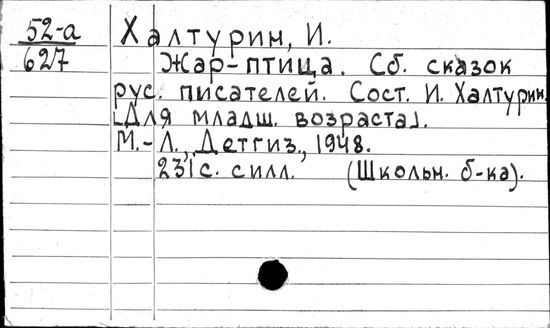 52-а
627
Халтурин, И.
Жар-птица. Сб. сказок
рус. писателей. Сост. И. Халтурин.
[Для младш. возраста].
М.-Л., Детгиз., 1948.
231с. силл. (Школьн. б-ка).